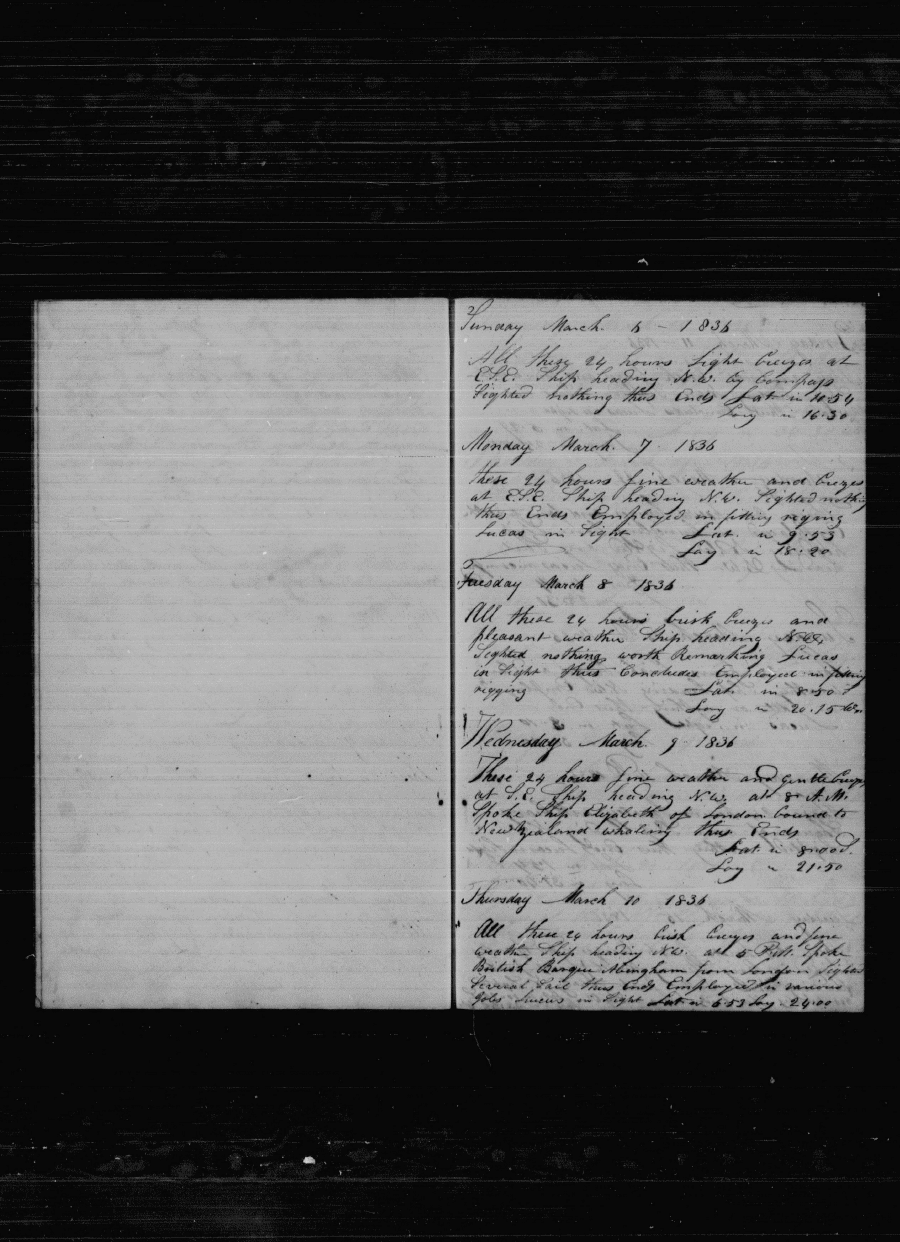 2
Sunday March. 6 - 1836
All these 24 hours Light Breezes at
E.S.E. Ship heading N.W. by Compass
Sighted nothing thus Ends Lat in 10.54
Long in 16.30
Monday March. 7. 1836
these 24 hours fine weather and Breezes
at E.S.E. Ship heading N.W. Sighted nothing
thus Ends Employed in fitting riging
Lucas in Sight Lat. in 9.53
Long in 18.20
Tuesday March 8 1836
All these 24 hours brisk Breezes and
pleasant weather Ship heading N.W.
Sighted nothing worth Remarking Lucas
in Sight thus Concludes Employed in fitting
rigging Lat. in 8.50
Long in 20.15 W.
Wednesday March. 9. 1836
These 24 hours fine weather and gentle Breezes
at S.E. Ship heading N.W. at 8 A.M.
Spoke Ship Elizabeth of London bound to
New Zealand whaling thus Ends
Lat. in
Long in 21.50
Thursday March 10 1836
All these 24 hours brisk Breezes and fine
weather Ship heading N.W. at 5 P.M. Spoke
British Barque from London Sighted
Several Sail thus Ends Employed in various
Jobs Lucas in Sight Lat in 6.53 Long. 24.00